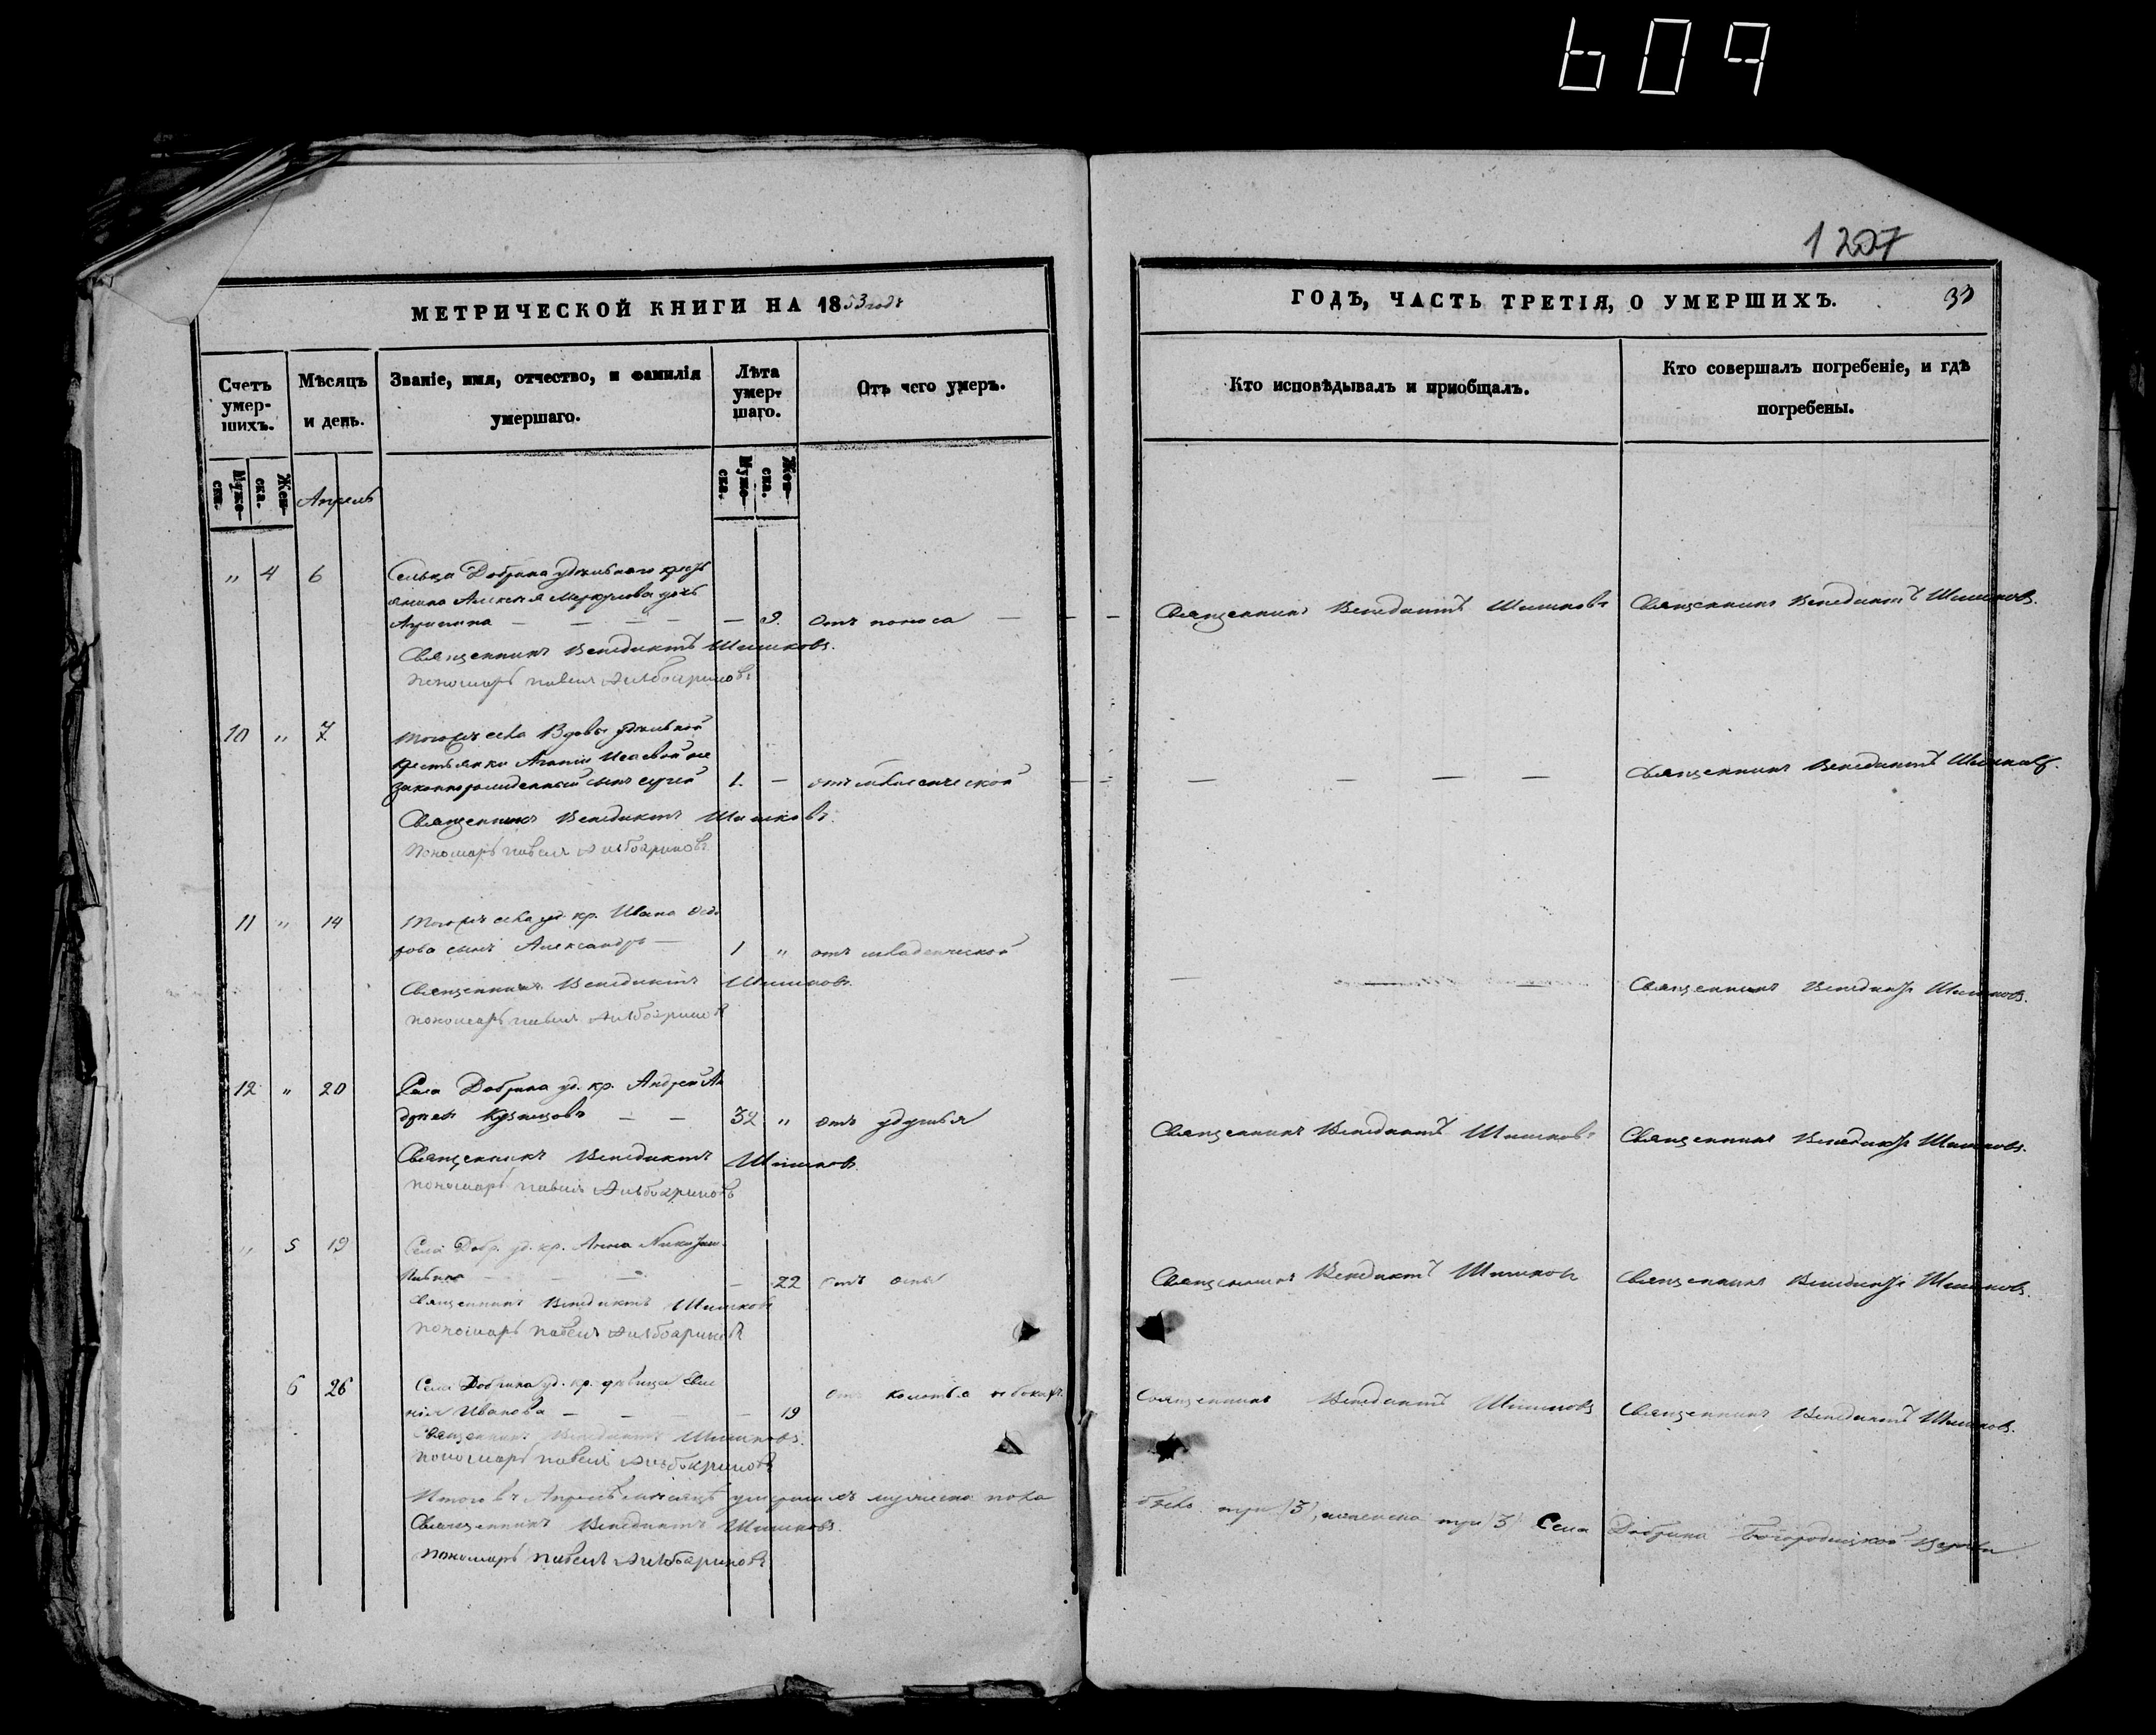 609
1207
МЕТРИЧЕСКОЙ КНИГИ НА 1853 годъ
ГОДЪ, ЧАСТЬ ТРЕТІЯ, О УМЕРШИХЪ.
Счетъ умер-шихъ.
Мѣсяцъ и день.
Званіе, имя, отчество, и фамилія умершаго.
Лѣта умер-шаго.
Отъ чего умеръ.
Кто исповѣдывалъ и приобщалъ.
Кто совершалъ погребеніе, и гдѣ погребены.
Муже-ска. Жен-ска.
Апрель
Муже-ска. Жен-ска.
" 4 6 Сельца Добрина удѣльнаго крест
янина Алексея Меркулова дочь
— 9. отъ поноса — — — Священникъ Венедиктъ Шишковъ Священникъ Венедиктъ Шишковъ.
Священникъ Венедиктъ Шишковъ.
пономарь павелъ
10 " 7 Тогожъ села Вдовы удѣльной
крестьянки Исаевой не
законнорожденный сынъ 1. — отъ младенческой — — — — Священникъ Венедиктъ Шишковъ.
Священникъ Венедиктъ Шишковъ.
пономарь павелъ
11 " 14 Тогожъ села уд. кр. Ивана Федо
рова сынъ Александръ — 1 " отъ младенческой
Священникъ Венедиктъ Шишковъ. — — — Священникъ Венедиктъ Шишковъ.
пономарь павелъ
12 " 20 Села Добрина уд. кр. Андрей Ан
дреевъ Кузнецовъ — — 32 " отъ удушья Священникъ Венедиктъ Шишковъ Священникъ Венедиктъ Шишковъ.
Священникъ Венедиктъ Шишковъ
пономарь павелъ
" 5 19 Села Добр. уд. кр. Анна
— 22 отъ Священникъ Венедиктъ Шишковъ Священникъ Венедиктъ Шишковъ.
Священникъ Венедиктъ Шишковъ
пономарь павелъ
6 26 Села Добрина уд. кр. дѣвица
Иванова — — — — 19 отъ Священникъ Венедиктъ Шишковъ Священникъ Венедиктъ Шишковъ.
Священникъ Венедиктъ Шишковъ.
пономарь павелъ
Итого въ Апрелѣ месяцѣ умершихъ мужеска пола было три (3), женска три (3) Села Добрина Богородицкой Церкви
Священникъ Венедиктъ Шишковъ.
пономарь павелъ